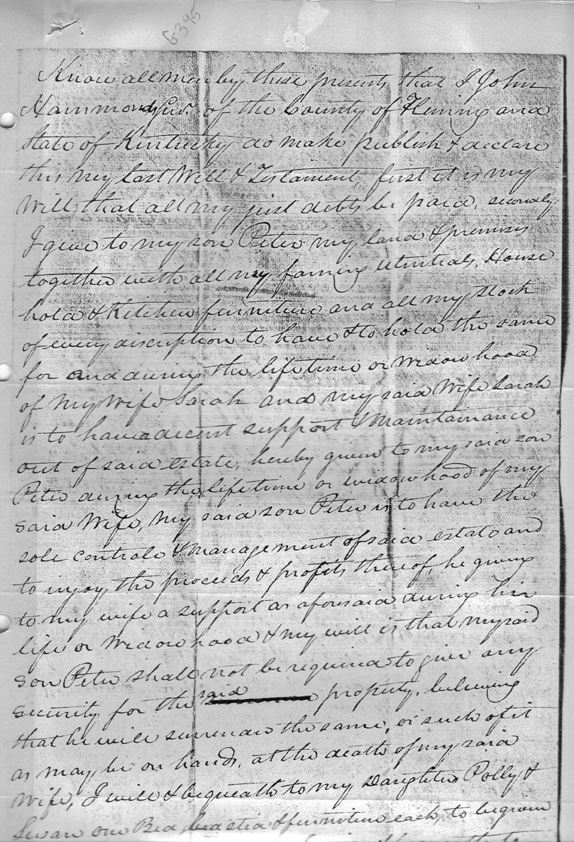 6395
Know all men by these presents that I John
Hammond Sen. of the County of Fleming and
State of Kentucky do make publish & declare
this my last Will & Testament, first it is my
Will that all my just debts be paid, secondly
I give to my son Peter my land & premises
together with all my farming utentials, House
hold & Kitchen furniture and all my stock
of every discription to have & to hold the same
for and during the lifetime or widowhood
of my Wife Sarah and my said Wife Sarah
is to have a decent support & Maintainance
out of said estate, hereby given to my said son
Peter during the lifetime or widowhood of my
said Wife, my said son Peter is to have the
sole controle & management of said estate and
to injoy the proceeds & profits thereof, he giving
to my wife a support as aforesaid during her
life or Widowhood & my will is that my said
son Peter shall not be required to give any
security for the said property, believing
that he will surrender the same, or such of it
as may be on hand, at the death of my said
Wife, I will & bequeath to my Daughters Polly &
Susan one Bed, beadstid & furniture each, to be given